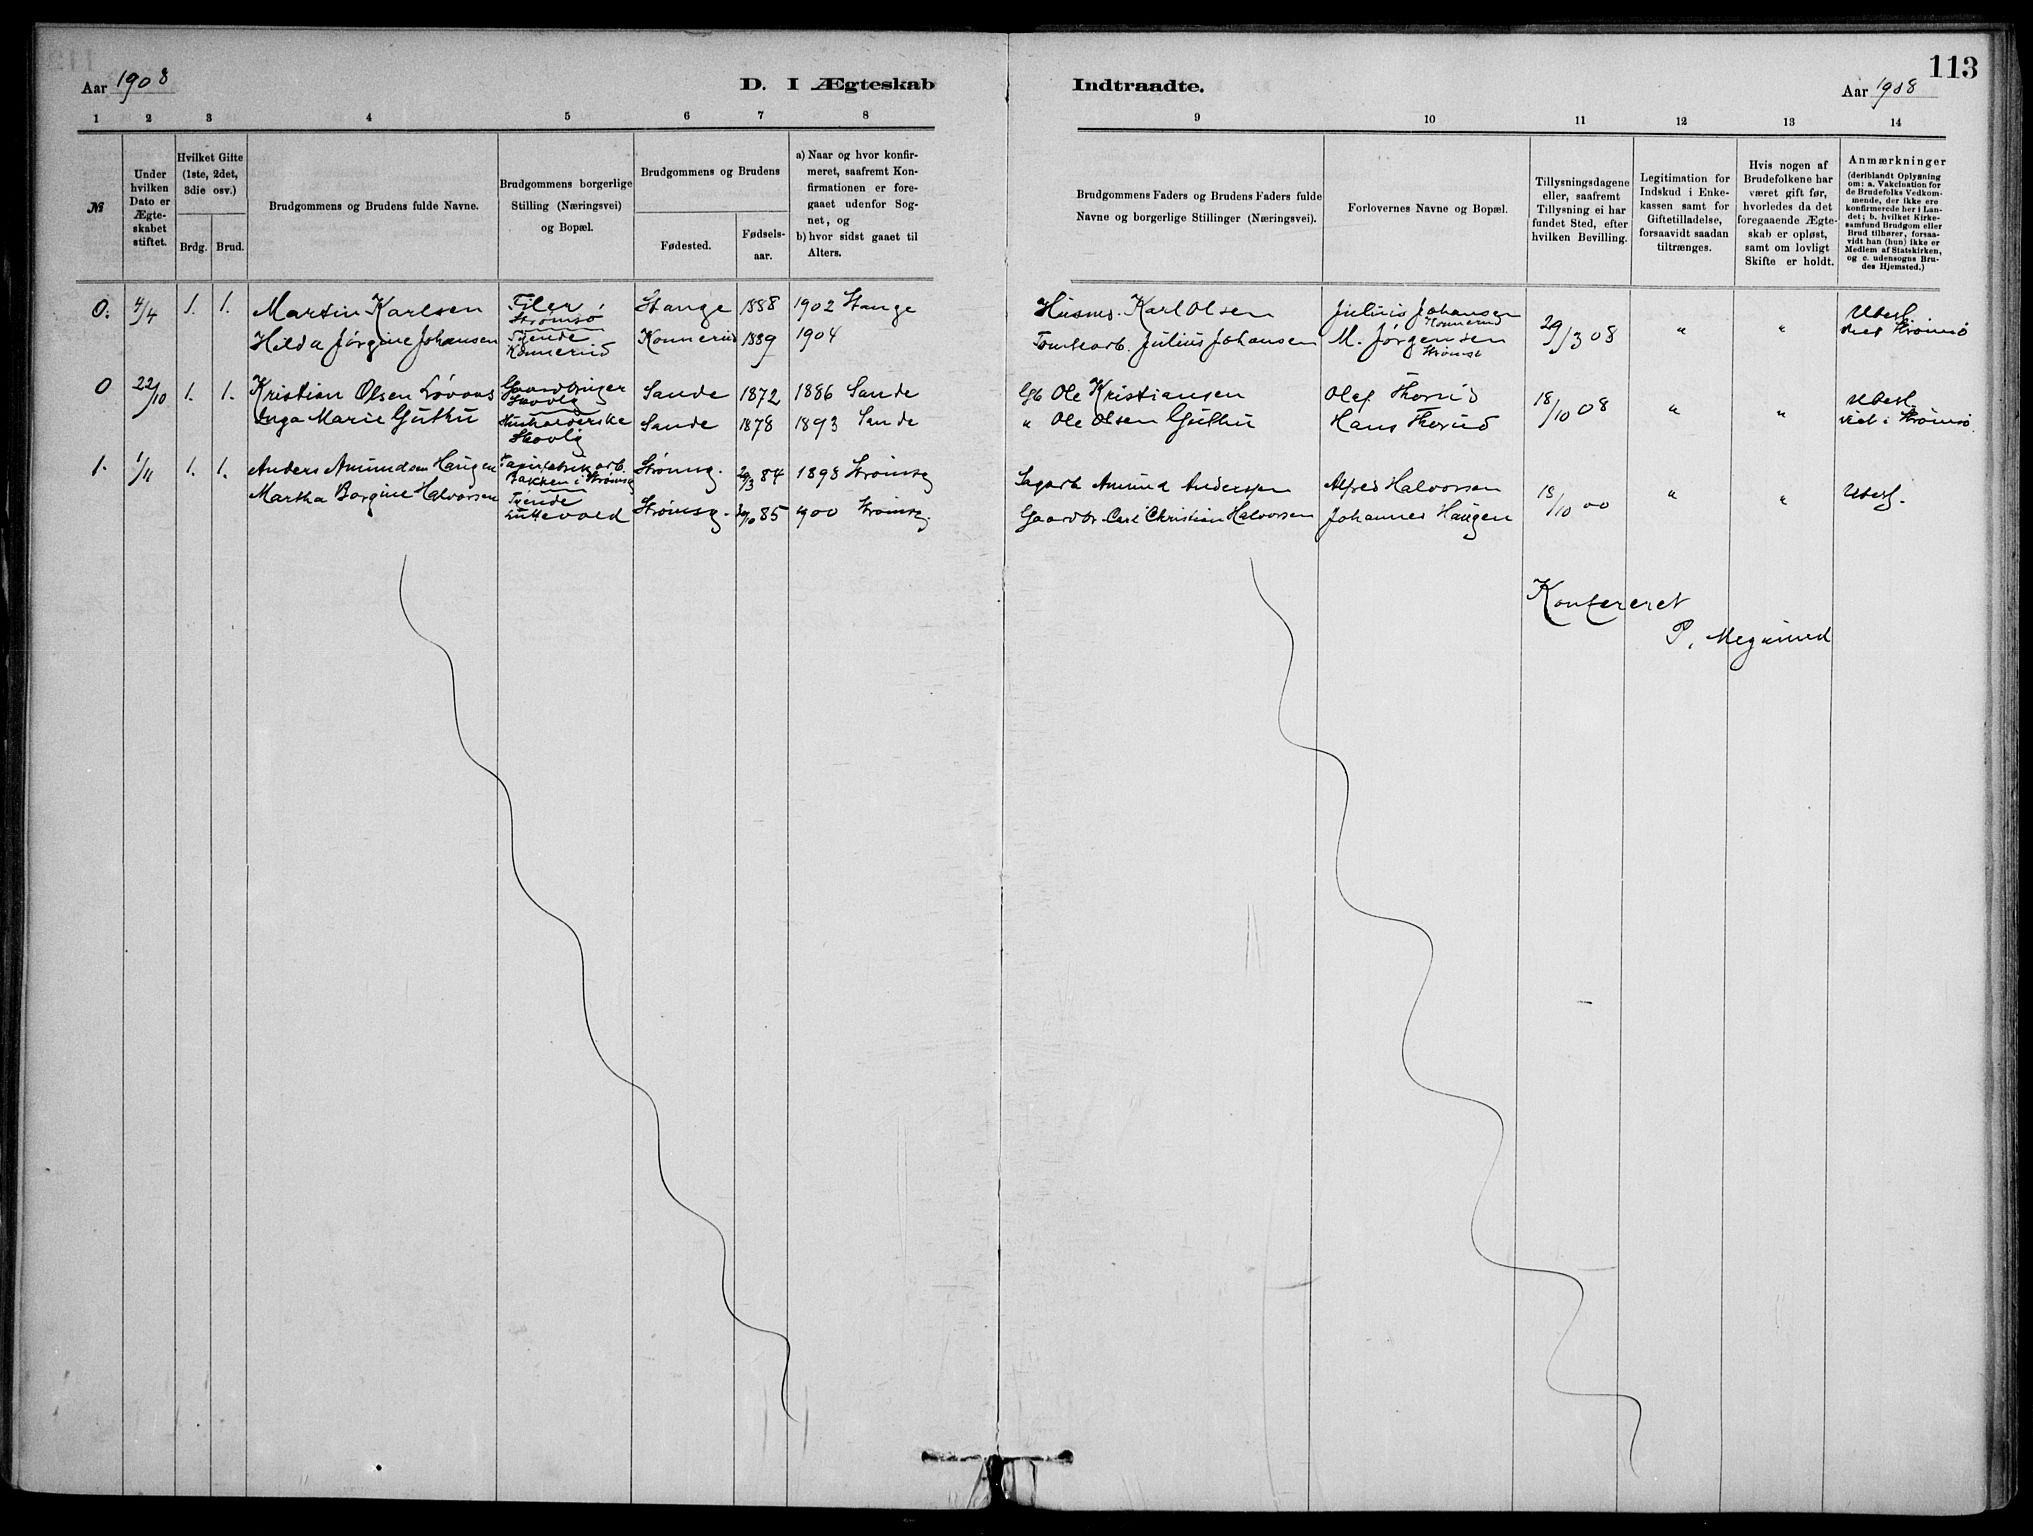 113
Aar 1908
D. I Ægteskab
Indtraadte.
Aar 1908
1 2 3 4 5 6 7 8
9 10 11 12 13 14
№
Under hvilken Dato er Ægte-skabet stiftet.
Hvilket Gifte (1ste, 2det, 3die osv.)
Brdg. Brud.
Brudgommens og Brudens fulde Navne.
Brudgommens borgerlige Stilling (Næringsvei) og Bopæl.
Brudgommens og Brudens
Fødested.
Fødsels-aar.
a) Naar og hvor konfir-meret, saafremt Kon-firmationen er fore-gaaet udenfor Sog-net, og
b) hvor sidst gaaet til Alters.
Brudgommens Faders og Brudens Faders fulde Navne og borgerlige Stillinger (Næringsvei).
Forlovernes Navne og Bopæl.
Tillysningsdagene eller, saafremt Tillysning ei har fundet Sted, efter hvilken Bevilling.
Legitimation for Indskud i Enke-kassen samt for Giftetilladelse, forsaavidt saadan tiltrænges.
Hvis nogen af Brudefolkene har været gift før, hvorledes da det foregaaende Ægte-skab er opløst, samt om lovligt Skifte er holdt.
Anmærkninger (deriblandt Oplysning om: a. Vakcination for de Brudefolks Vedkom-mende, der ikke ere konfirmerede her i Lan-det; b. hvilket Kirke-samfund Brudgom eller Brud tilhører, forsaa-vidt han (hun) ikke er Medlem af Statskirken, og c. udensogns Bru-des Hjemsted.)
0. 4/4 1. 1. Martin Karlsen Filer Strømsø Stange 1888 1902 Stange Husm. Karl Olsen Julius Johansen Konnerud 29/3 08 " "
Hilda Jørgine Johansen Tjende Konnerud Konnerud 1889 1904 Tomtearb. Julius Johansen M. Jørgensen Strømsø
0 22/10 1. 1. Kristian Olsen Gaardbruger Skovlg Sande 1872 1886 Sande Gb Ole Kristiansen Olaf Thorud 18/10 08 " "
Inga Marie Guthu Husholderske Skovlg Sande 1878 1893 Sande " Ole Olsen Guthu Hans Thorud
1. 1/11 1. 1. Anders Amundsen Haugen Bakken i Strømsg Strømsg. 29/3 84 1898 Strømsg Sagarb Amund Andersen Alfred Halvorsen 18/10 00 " "
Martha Borgine Halvorsen Tjende Strømsg. 85 1900 Strømsg. Gaardbr. Carl Christian Halvorsen Johannes Haugen
Konfereret
P.